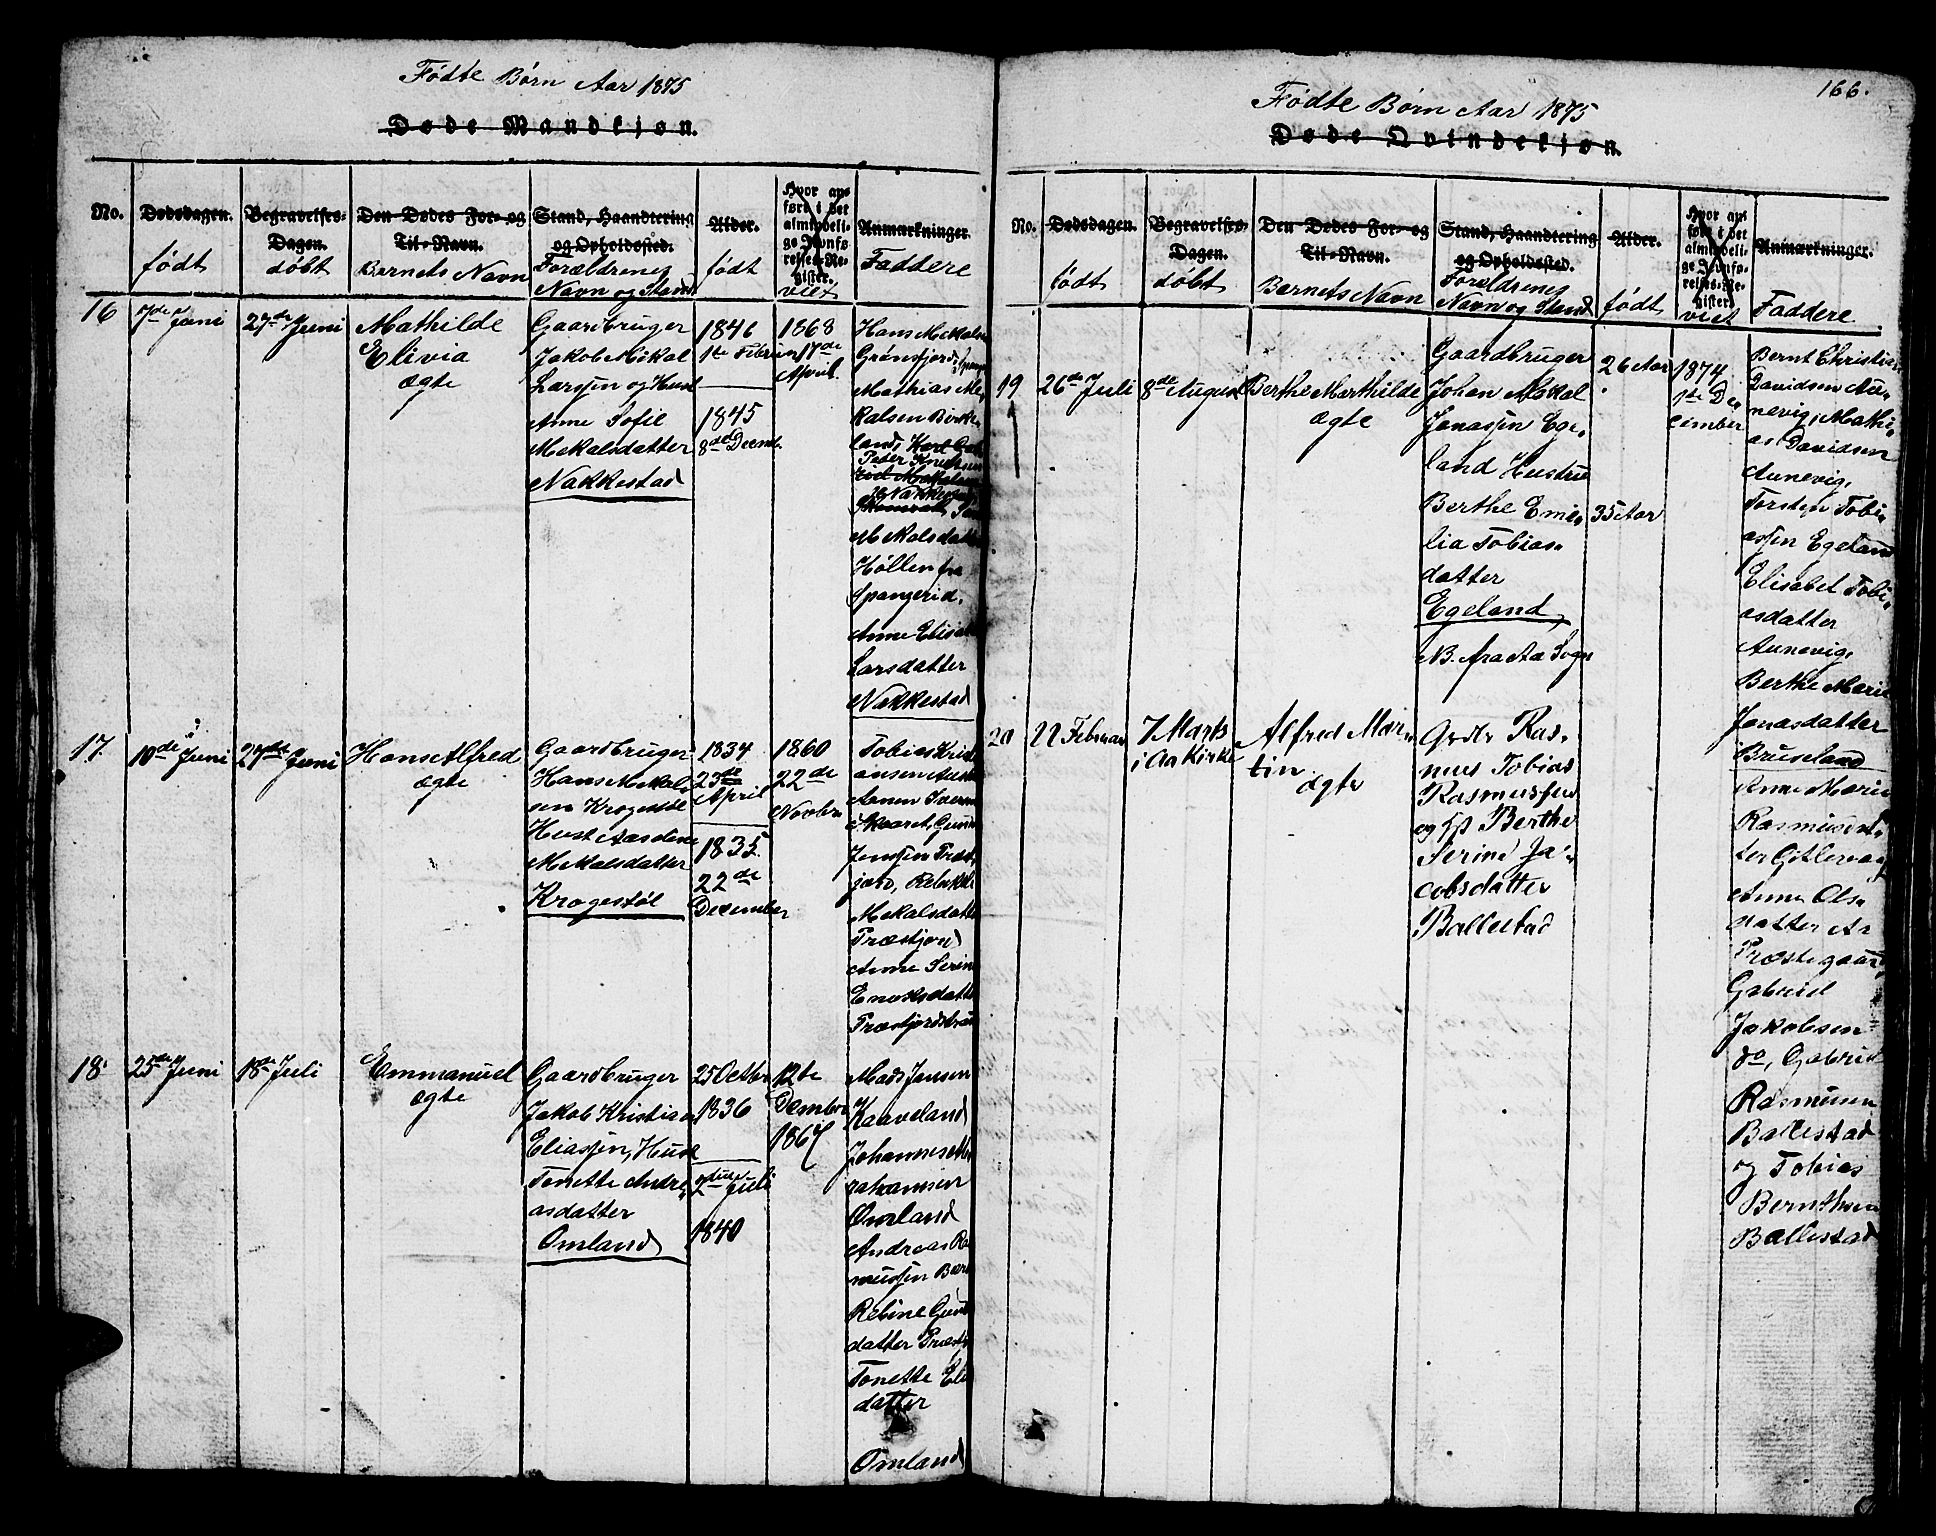 Fødte Børn Aar 1875
Døde Mandkjøn.
No.
Dødsdagen.
født
Begravelses-
Dagen.
døbt
Den Dødes For- og
Til-Navn.
Barnets Navn
Stand, Haandtering
og Opholdssted.
Forældrenes
Navn og Stand
Alder.
født
Hvor an-
ført i det
almindeli-
ge Jevnfø-
relses-Re-
gister.
viet
Anmærkninger.
Faddere
16
7de Juni
27de Juni
Mathilde
Elivia
ægte
Gaardbruger
Jakob Mikal
Larssen og Hust
Anne Sofie
Mekalsdatter
Nakkestad
1846
1te Februar
1845
8de Decmb.
1868
17de
April
Hans Mekalsen
Grønsfjord,
Mathias Me-
kalsen Birke-
land,
Peder Knudsen
Nakkestad
Mekalsdatter
Høllen fra
Spangerid.
Anne Elisabet
Larsdatter
Nakkestad
17.
10de Juni
27de Juni
Hans Alfred
ægte
Gaardbruger
Hans Mekal-
sen Krogestøl
Hust Aaselene
Mekalsdatter
Krogestøl
1834
23de
April
1835.
22de
December
1860
22de
Novbr
Tobias Krist-
ansen
Jenssen Træs-
jord, Rebekke
Mekalsdatter
Træsfjord
Anne Serine
Enoksdatter
18.
25de Juni
18de Juli
Emmanuel
ægte
Gaardbruger
Jakob Kristian
Eliassen, Hust
Tonette Andre-
asdatter
Omland
25 Octbr
1836
2den Juli
1840
12te
Decmber
1867
Mads Jansen
Kaaveland
Johannes
Johannsen
Omland
Andreas Ra
mussen
Rebine
datter
Tonette Eli
datter
Omland
166.
Fødte Børn Aar 1875
Døde Qvindekjøn.
No.
Dødsdagen.
født
Begravelses-
Dagen.
døbt
Den Dødes For- og
Til-Navn.
Barnets Navn
Stand, Haandtering
og Opholdssted.
Forældrenes
Navn og Stand
Alder.
født
Hvor an-
ført i det
almindeli-
ge Jevnfø-
relses-Re-
gister.
viet
Anmærkninger.
Faddere
19
26de Juli
8de August
Berthe Marthilde
ægte
Gaardbruger
Johan Mekal
Jonassen Ege-
land Hustrue
Berthe Emi-
lia Tobias-
datter
Egeland,
NB. fra Aa Sogn
26 Aar
35 Aar
1874
1te De-
cember
Bernt Christian
Davidsen Au-
nevig, Mathi-
as Davidsen
Aunevig,
Torsten Tobi-
assen Egeland
Elisabet Tobi-
asdatter
Aunevig,
Berthe Marie
Jonasdatter
Bruseland
20
22 Februar
7 Marts
i Aa Kirke
Alfred Mar-
tin
ægte
Gbr. Ras-
mus Tobias
Rasmussen
og Hst Berthe
Serine Ja-
cobsdatter
Ballestad
Anne Marie
Rasmusdat-
ter
Anne Ols-
datter Aa
Præstegaard
Gabriel
Jakobsen
do, Gabriel
Rasmusen
Ballestad
og Tobias
Bernthsen
Ballestad